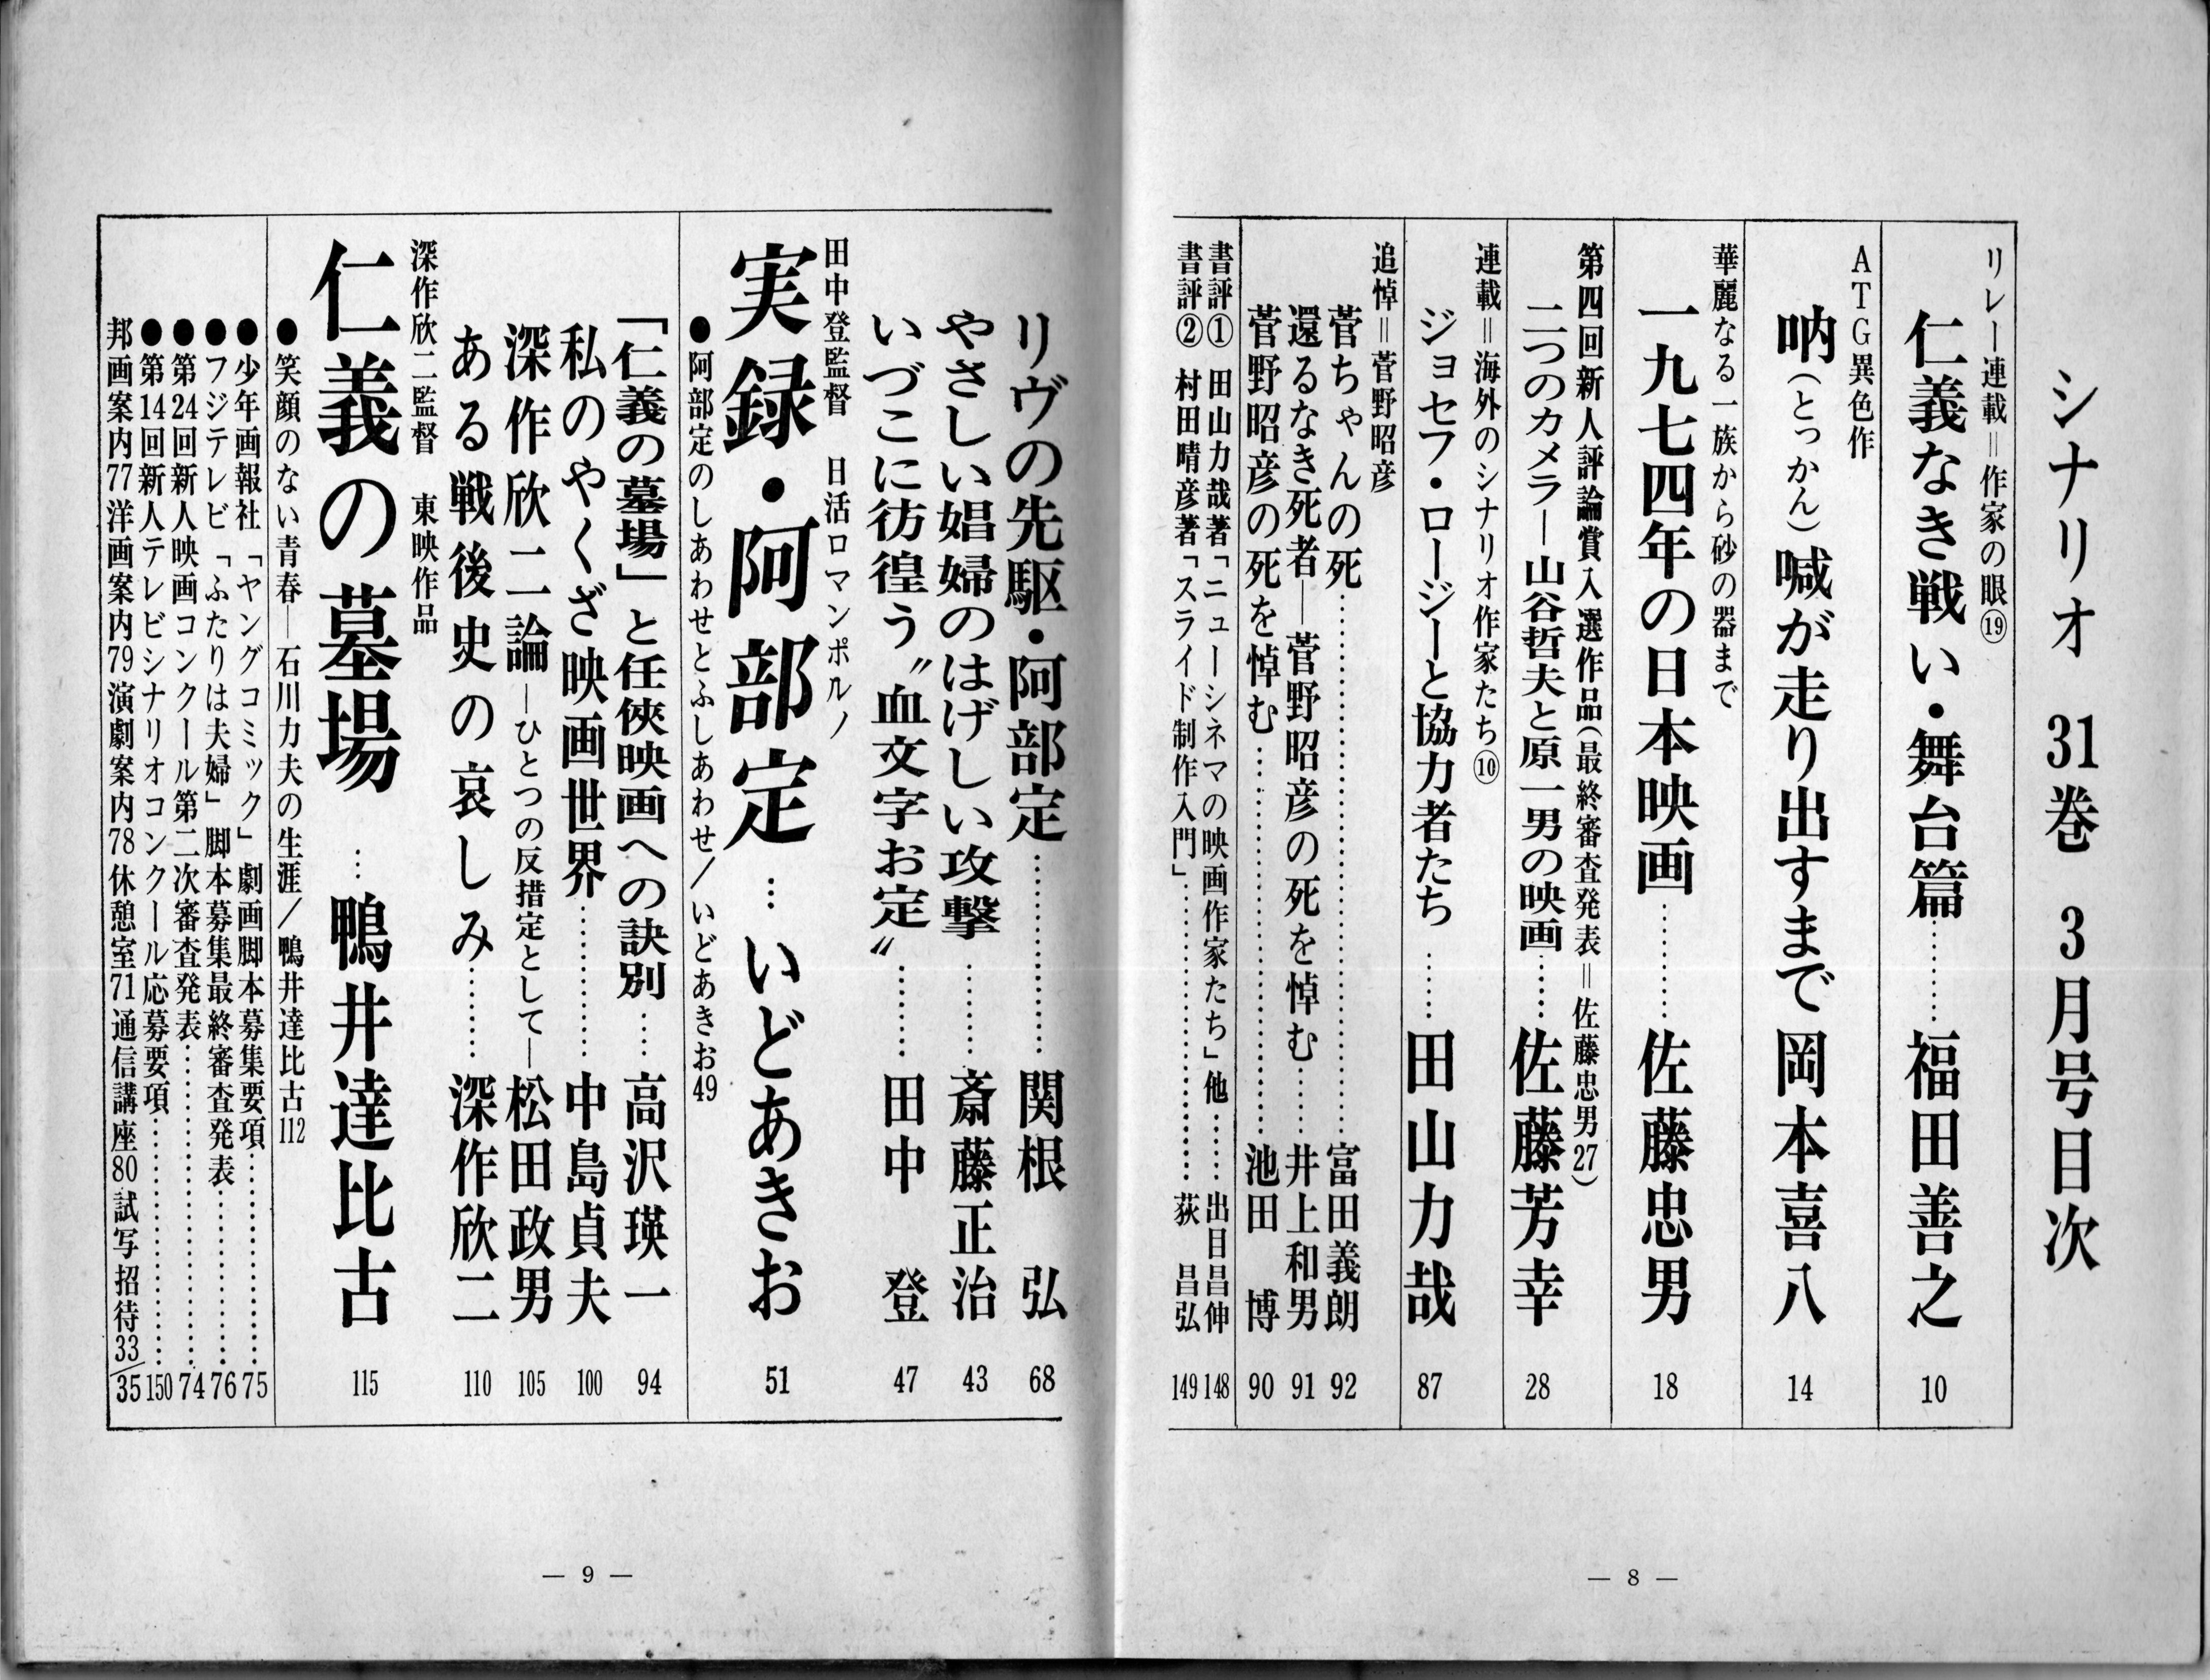 シナリオ 31巻 3月号目次
リレー連載＝作家の眼⑲
仁義なき戦い・舞台篇………福田善之 10
ATG異色作
吶(とっかん)喊が走り出すまで 岡本喜八 14
華麗なる一族から砂の器まで
一九七四年の日本映画………佐藤忠男 18
第四回新人評論賞入選作品(最終審査発表＝佐藤忠男27)
二つのカメラ―山谷哲夫と原一男の映画……佐藤芳幸 28
連載＝海外のシナリオ作家たち⑩
ジョセフ・ロージーと協力者たち……田山力哉 87
追悼＝菅野昭彦
菅ちゃんの死……………………………富田義朗 92
還るなき死者―菅野昭彦の死を悼む……井上和男 91
菅野昭彦の死を悼む……………………池田 博 90
書評① 田山力哉著「ニューシネマの映画作家たち」他……出目昌伸 148
書評② 村田晴彦著「スライド制作入門」………………荻 昌弘 149
― 8 ―
リヴの先駆・阿部定………………関根 弘 68
やさしい娼婦のはげしい攻撃………斎藤正治 43
いづこに彷徨う〝血文字お定〟………田中 登 47
田中登監督 日活ロマンポルノ
実録・阿部定…いどあきお 51
●阿部定のしあわせとふしあわせ／いどあきお49
「仁義の墓場」と任侠映画への訣別……高沢瑛一 94
私のやくざ映画世界……………中島貞夫 100
深作欣二論―ひとつの反措定として―松田政男 105
ある戦後史の哀しみ………深作欣二 110
深作欣二監督 東映作品
仁義の墓場…鴨井達比古 115
●笑顔のない青春―石川力夫の生涯／鴨井達比古112
●少年画報社「ヤングコミック」劇画脚本募集要項………………75
●フジテレビ「ふたりは夫婦」脚本募集最終審査発表……………76
●第24回新人映画コンクール第二次審査発表…………………74
●第14回新人テレビシナリオコンクール応募要項………………150
邦画案内77洋画案内79演劇案内78休憩室71通信講座80試写招待33/35
― 9 ―